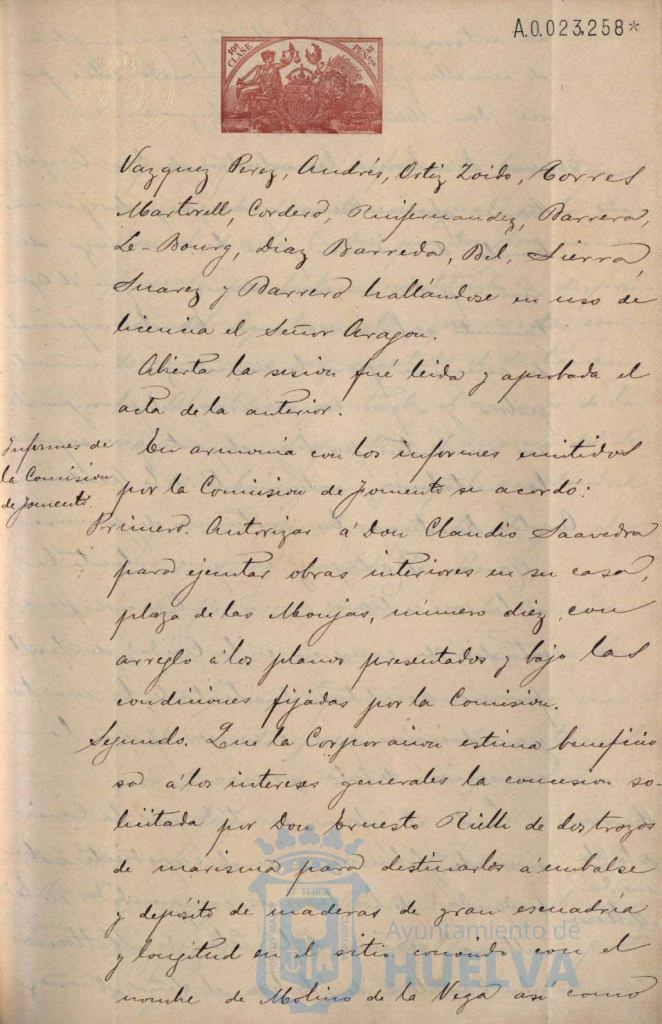 A.0.023,258*
10ª CLASE
2 PESETAS
Vazquez Perez, Andrés, Ortiz Zoido, Torres
Martorell, Cordero, Ruifernandez, Barrera,
Le-Bourg, Diaz Barreda, Bel, Sierra,
Suarez y Barrero hallándose en uso de
licencia el Señor Aragon.
Abierta la sesion fué leida y aprobada el
acta de la anterior.
Informes de
la Comision
de fomento.
En armonia con los informes emitidos
por la Comision de fomento se acordó:
Primero. Autorizar á Don Claudio Saavedra
para ejecutar obras interiores en su casa,
plaza de las Monjas, número diez, con
arreglo á los planos presentados y bajo las
condiciones fijadas por la Comision.
Segundo. Que la Corporacion estima beneficio
sa á los intereses generales la concesion so-
licitada por Don Ernesto de dos trozos
de marisma para destinarlos á embalse
y depósito de maderas de gran escuadría
y longitud en el sitio conocido con el
nombre de Molino de la Vega asi como
Ayuntamiento de
HUELVA